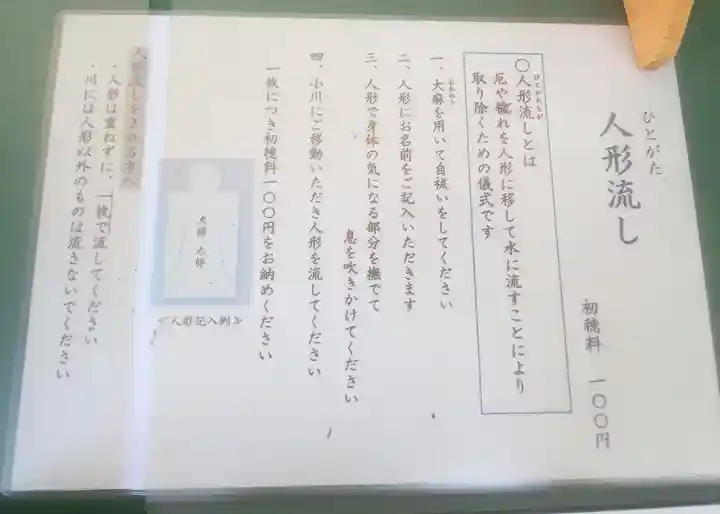 ひとがた
人形流し
初穂料 一〇〇円
〇人形流しとは
厄や穢れを人形に移して水に流すことにより
取り除くための儀式です
一、大麻を用いて自祓いをしてください
二、人形にお名前をご記入いただきます
三、人形で身体の気になる部分を撫でて
息を吹きかけてください
四、小川にご移動いただき人形を流してください
一枚につき初穂料一〇〇円をお納めください
≪人形記入例≫
人形流しをされる方へ
・人形は重ねずに、一枚で流してください
・川には人形以外のものは流さないでください